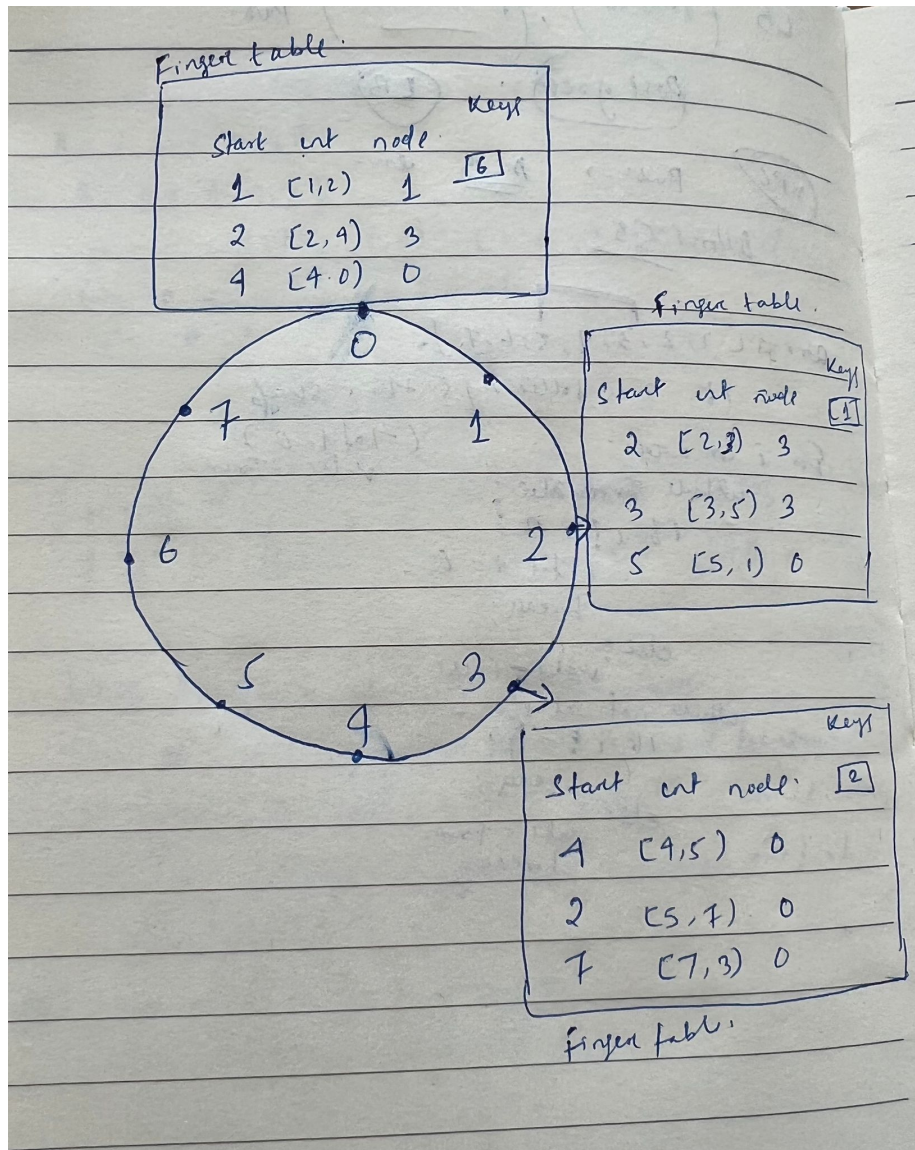 Finger table.
Keys
Start int node
1 [1,2) 1 6
2 [2,4) 3
4 [4.0) 0
Finger table.
Keys
Start int node 1
2 [2,3) 3
3 [3,5) 3
5 [5,1) 0
0
1
2
3
4
5
6
7
Keys
Start int node. 2
4 [4,5) 0
2 [5,7) 0
7 [7,3) 0
Finger table.